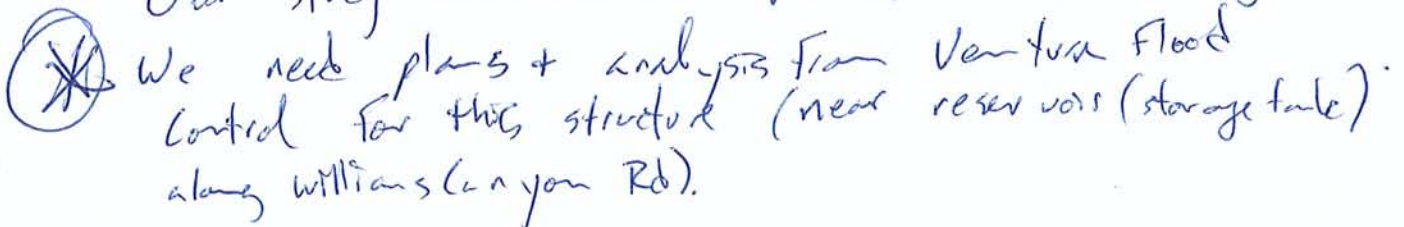 We need plans + analysis from Ventura Flood
Control for this structure (near reservoir (storage tank)
along Williams Canyon Rd).